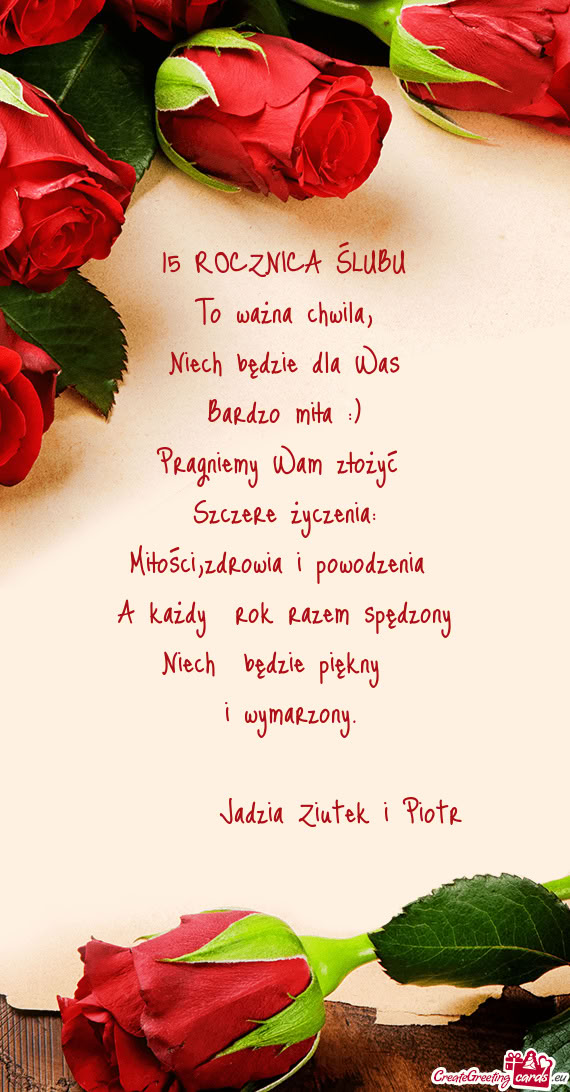 15 ROCZNICA ŚLUBU
To ważna chwila,
Niech będzie dla Was
Bardzo miła :)
Pragniemy Wam złożyć
Szczere życzenia:
Miłości,zdrowia i powodzenia
A każdy rok razem spędzony
Niech będzie piękny
i wymarzony.
Jadzia Ziutek i Piotr
CreateGreeting cards .eu